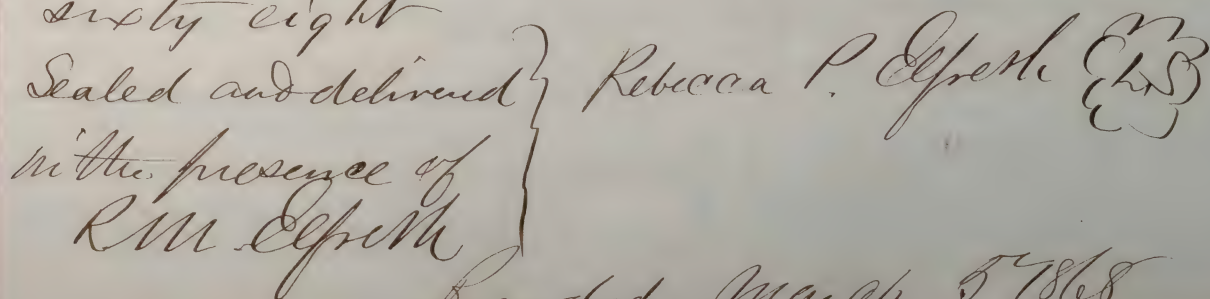 sixty eight
Sealed and delivered
in the presence of
R M Elfreth
Rebecca P. Elfreth L.S
Recorded March 5 1868